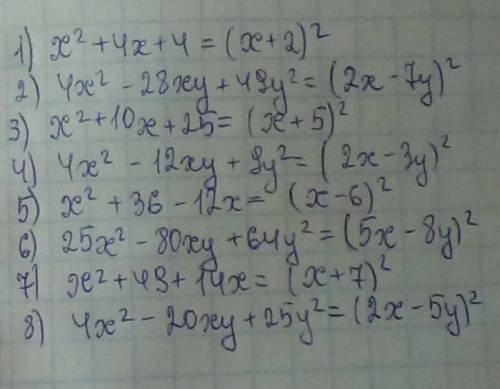 1) x² + 4x + 4 = (x + 2)²
2) 4x² - 28xy + 49y² = (2x - 7y)²
3) x² + 10x + 25 = (x + 5)²
4) 4x² - 12xy + 9y² = (2x - 3y)²
5) x² + 36 - 12x = (x - 6)²
6) 25x² - 80xy + 64y² = (5x - 8y)²
7) x² + 49 + 14x = (x + 7)²
8) 4x² - 20xy + 25y² = (2x - 5y)²